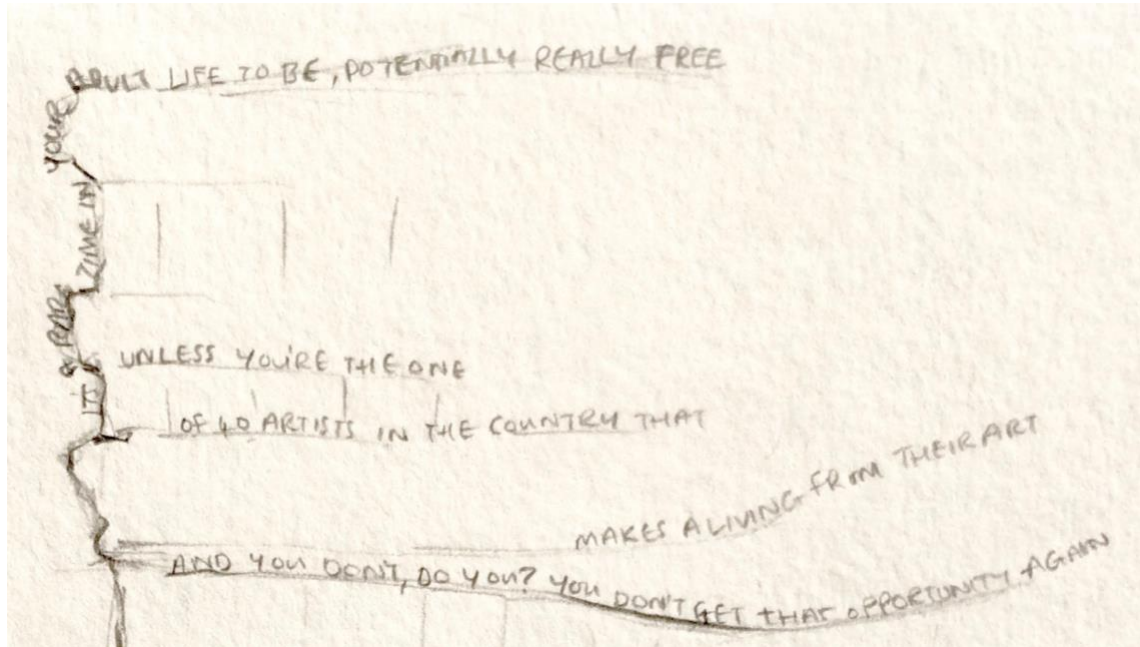 IT'S A RARE TIME IN YOUR
ADULT LIFE TO BE, POTENTIALLY REALLY FREE
UNLESS YOU'RE THE ONE
OF 40 ARTISTS IN THE COUNTRY THAT
MAKES A LIVING FROM THEIR ART
AND YOU DON'T, DO YOU? YOU DON'T GET THAT OPPORTUNITY AGAIN